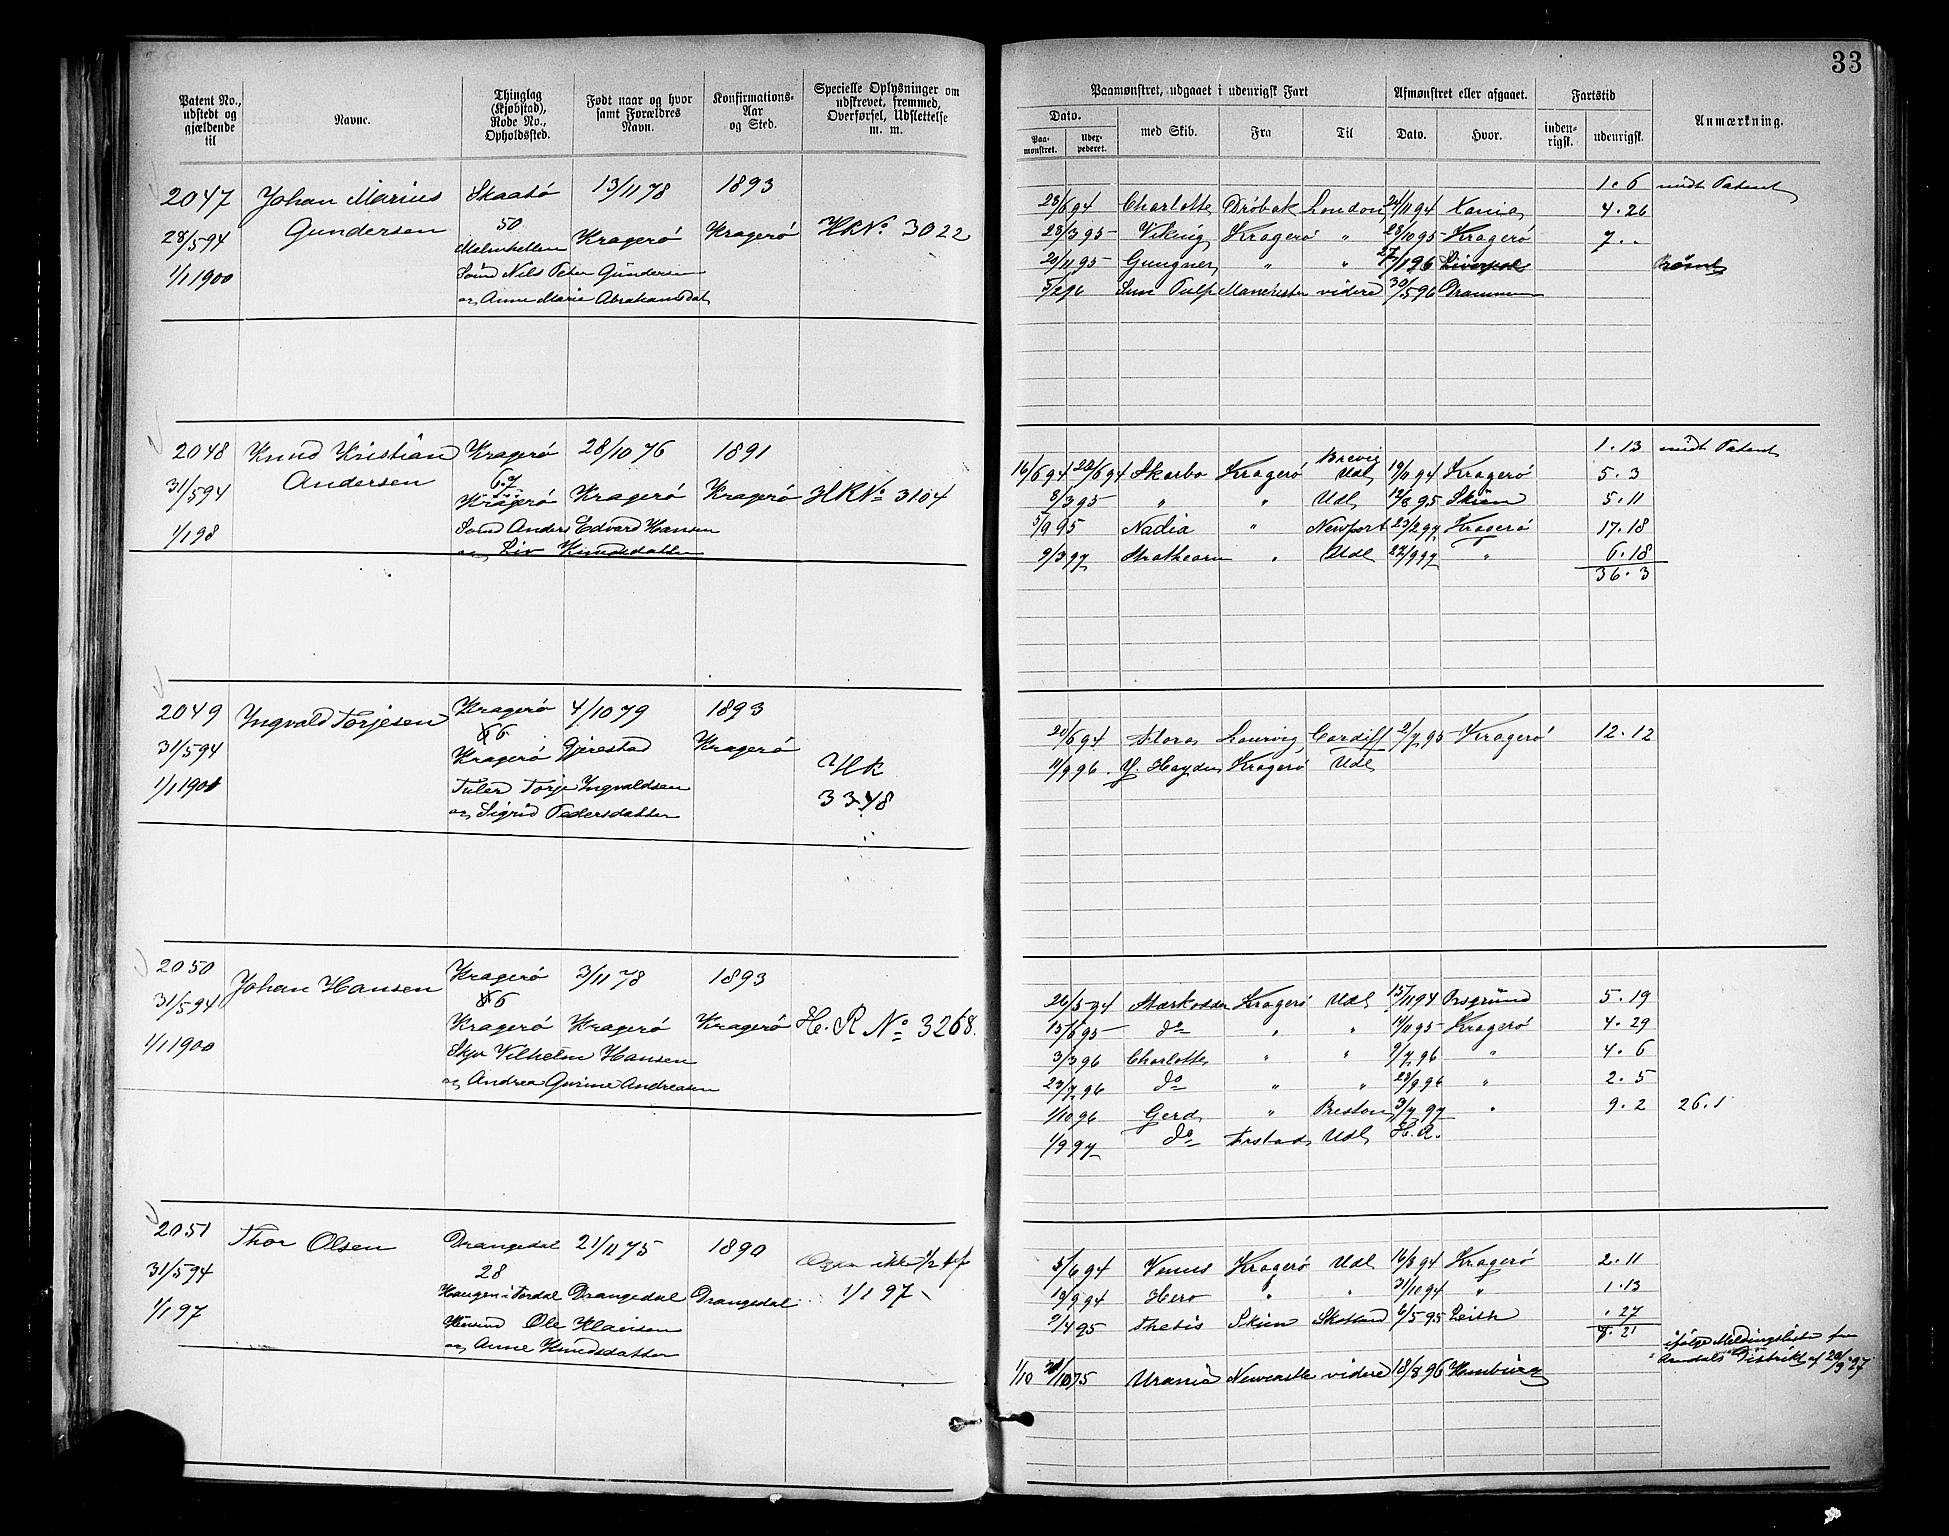 33
Patent No., udstedt og gjældende til
Navne.
Thinglag (Kjøbstad), Rode No., Opholdssted.
Født naar og hvor samt Forældres Navn.
Konfirmations-Aar og Sted.
Specielle Oplysninger om udskrevet, fremmed, Overførsel, Udslettelse m. m.
Paamønstret, udgaaet i udenrigsk Fart
Afmønstret eller afgaaet.
Fartstid
Anmærkning.
Dato.
Paa-mønstret.
Udex-pederet.
med Skib.
Fra
Til
Dato.
Hvor.
inden-rigsk.
udenrigsk.
2047 Johan Marius Skaatö 13/11 78 1893
Gundersen 50
28/5 94 Kragerö Kragerö HRNo. 3022
1/1 1900 Nils Peter Gundersen
og Anne Marie Abrahamsdat
1. 6 midt Patent
23/6 94 Charlotte Dröbak London 24/11 94 Xania 4. 26
23/3 95 Viking Kragerö " 23/10 95 Kragerö 7. "
20/11 95 Gungner " " 27/1 96 Liverpool
5/2 96 Manchester videre 30/5 96 Drammen
2048 Knud Kristian Kragerö 28/10 76 1891
Andersen 67
31/5 94 Kragerö Kragerö Kragerö HRNo. 3104
1/1 98 Anders Edvard Hansen
og Liv Knudsdatter
1. 13 midt Patent
Brevig
16/6 94 22/6 94 Skarbo Kragerö Udl 19/11 94 Kragerö 5. 3
2/3 95 " " Udl 12/8 95 Skien 5. 11
5/9 95 Nadia " Newport 23/2 97 Kragerö 17. 18
9/3 97 Strathearn " Udl 22/9 97 " 6. 18
36. 3
2049 Ingvald Torjesen Kragerö 4/10 79 1893
66
31/5 94 Kragerö Gjerestad Kragerö HR
1/1 1901 Torje Ingvaldsen 3348
og Sigrid Pedersdatter
20/6 94 Flora Laurvig Cardiff 2/7 95 Kragerö 12. 12
11/9 96 Y. Hayden Kragerö Udl
2050 Johan Hansen Kragerö 3/11 78 1893
66
31/5 94 Kragerö Kragerö Kragerö H. R No. 3268.
1/1 1900 Skpr Vilhelm Hansen
og Andrea Gurine Andreasen
26/5 94 Stærkodder Kragerö Udl 15/11 94 Porsgrund 5. 19
13/6 95 do " " 11/11 95 Kragerö 4. 29
3/3 96 Charlotte " " 9/7 96 " 4. 6
23/7 96 do " " 28/9 96 " 2. 5
1/10 96 Gerd " Preston 3/7 97 " 9. 2 26. 1
1/9 97 do Udl H. R.
2051 Thor Olsen Drangedal 21/11 75 1890
28
31/5 94 Haugen i Tördal Drangedal Drangedal 1/1 97
1/1 97 Ole Klausen
og Anne Knudsdatter
5/6 94 Venus Kragerö Udl 16/8 94 Kragerö 2. 11
19/9 94 Hero " " 31/10 94 " 1. 13
9/4 95 Thetis Skien Skotland 6/5 95 Leith . 27
ifölge Meldingsliste fra
Arendals Distrikt af 20/9 97
1/10 95 Urania Newcastle videre 18/8 96 Hamburg